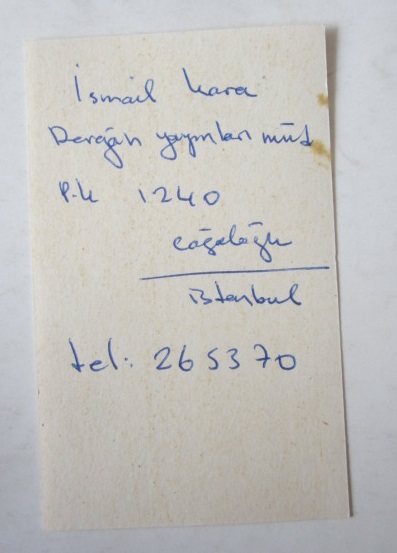 İsmail Kara
Dergâh yayınları müd
P.k 1240
Cağaloğlu
istanbul
tel: 265370